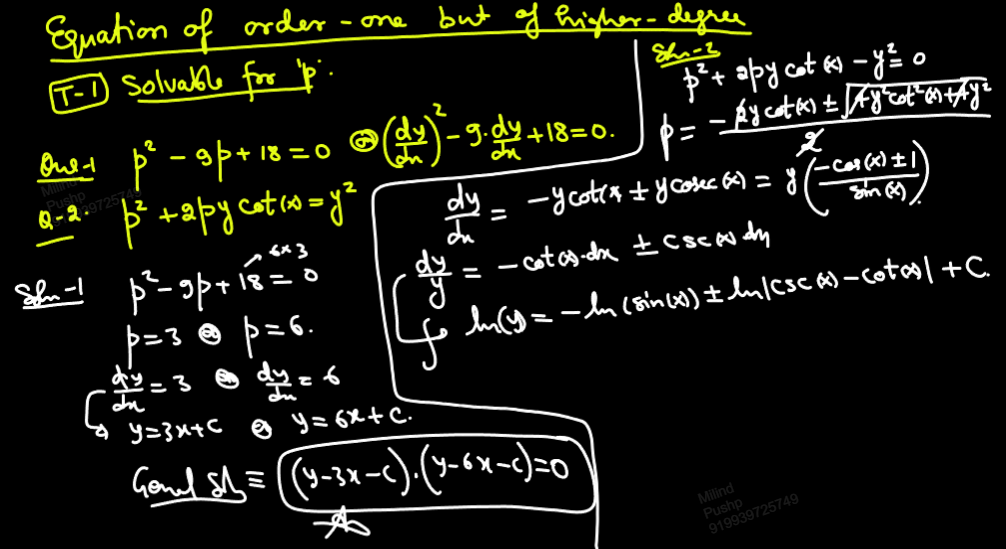 Equation of order-one but of higher-degree
T-1 Solvable for 'p'.
Que-1 p² - 9p + 18 = 0 or (dy/dx)² - 9·dy/dx + 18 = 0.
Q-2. p² + 2py cot(x) = y²
Soln-1 p² - 9p + 18 = 0
6×3
p = 3 or p = 6.
dy/dx = 3 or dy/dx = 6
y = 3x + c or y = 6x + c.
≡ (y-3x-c).(y-6x-c)=0
Soln-2
p² + 2py cot(x) - y² = 0
p = (-2y cot(x) ± √(4y²cot²(x) + 4y²))/2
dy/dx = -y cot(x ± y cosec(x) = y((-cos(x) ± 1)/sin(x)).
dy/y = -cot(x)·dx ± csc(x) dx
∫ ln(y = -ln(sin(x)) ± ln|csc(x) - cot(x)| + C.
Milind
Pushp
919939725749
Milind
Pushp
919939725749